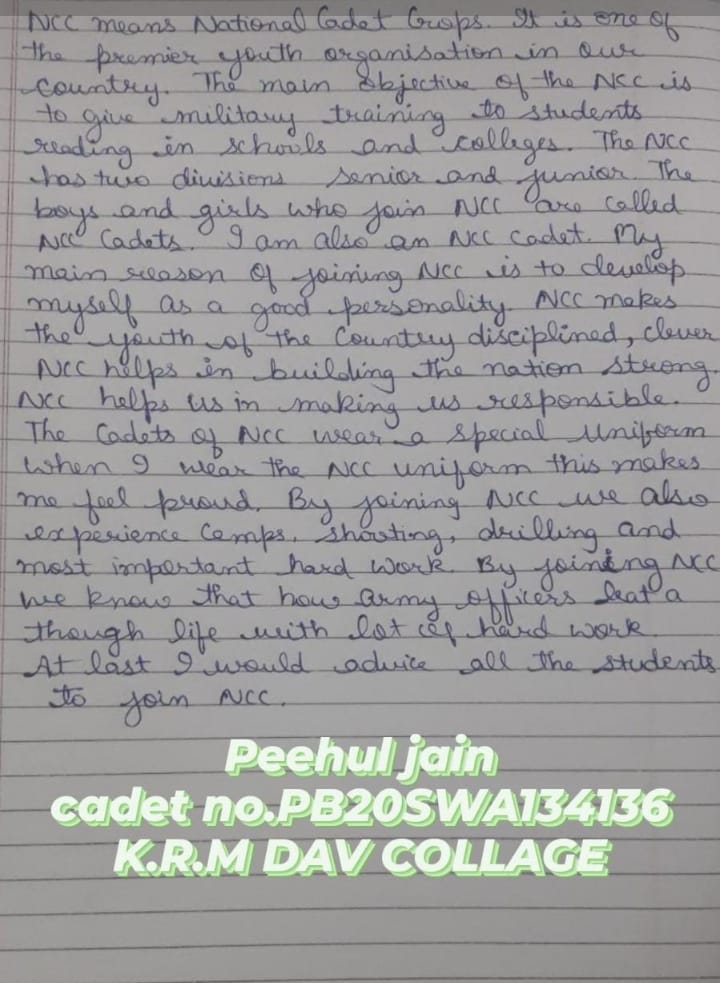 NCC means National Cadet Crops. It is one of
the premier youth organisation in our
country. The main objective of the NCC is
to give military training to students
reading in schools and colleges. The NCC
has two divisions senior and junior. The
boys and girls who join NCC are called
NCC Cadets. I am also an NCC cadet. My
main reason of joining NCC is to develop
myself as a good personality. NCC makes
the youth of the Country disciplined, clever
NCC helps in building the nation strong.
NCC helps us in making us responsible.
The Cadets of NCC wear a special uniform
when I wear the NCC uniform this makes
me feel proud. By joining NCC we also
experience Camps, shooting, drilling and
most important hard work. By joining NCC
we know that how army officers a
though life with lot of hard work.
At last I would advice all the students
to join NCC.
Peehul jain
cadet no.PB20SWA134136
K.R.M DAV COLLAGE